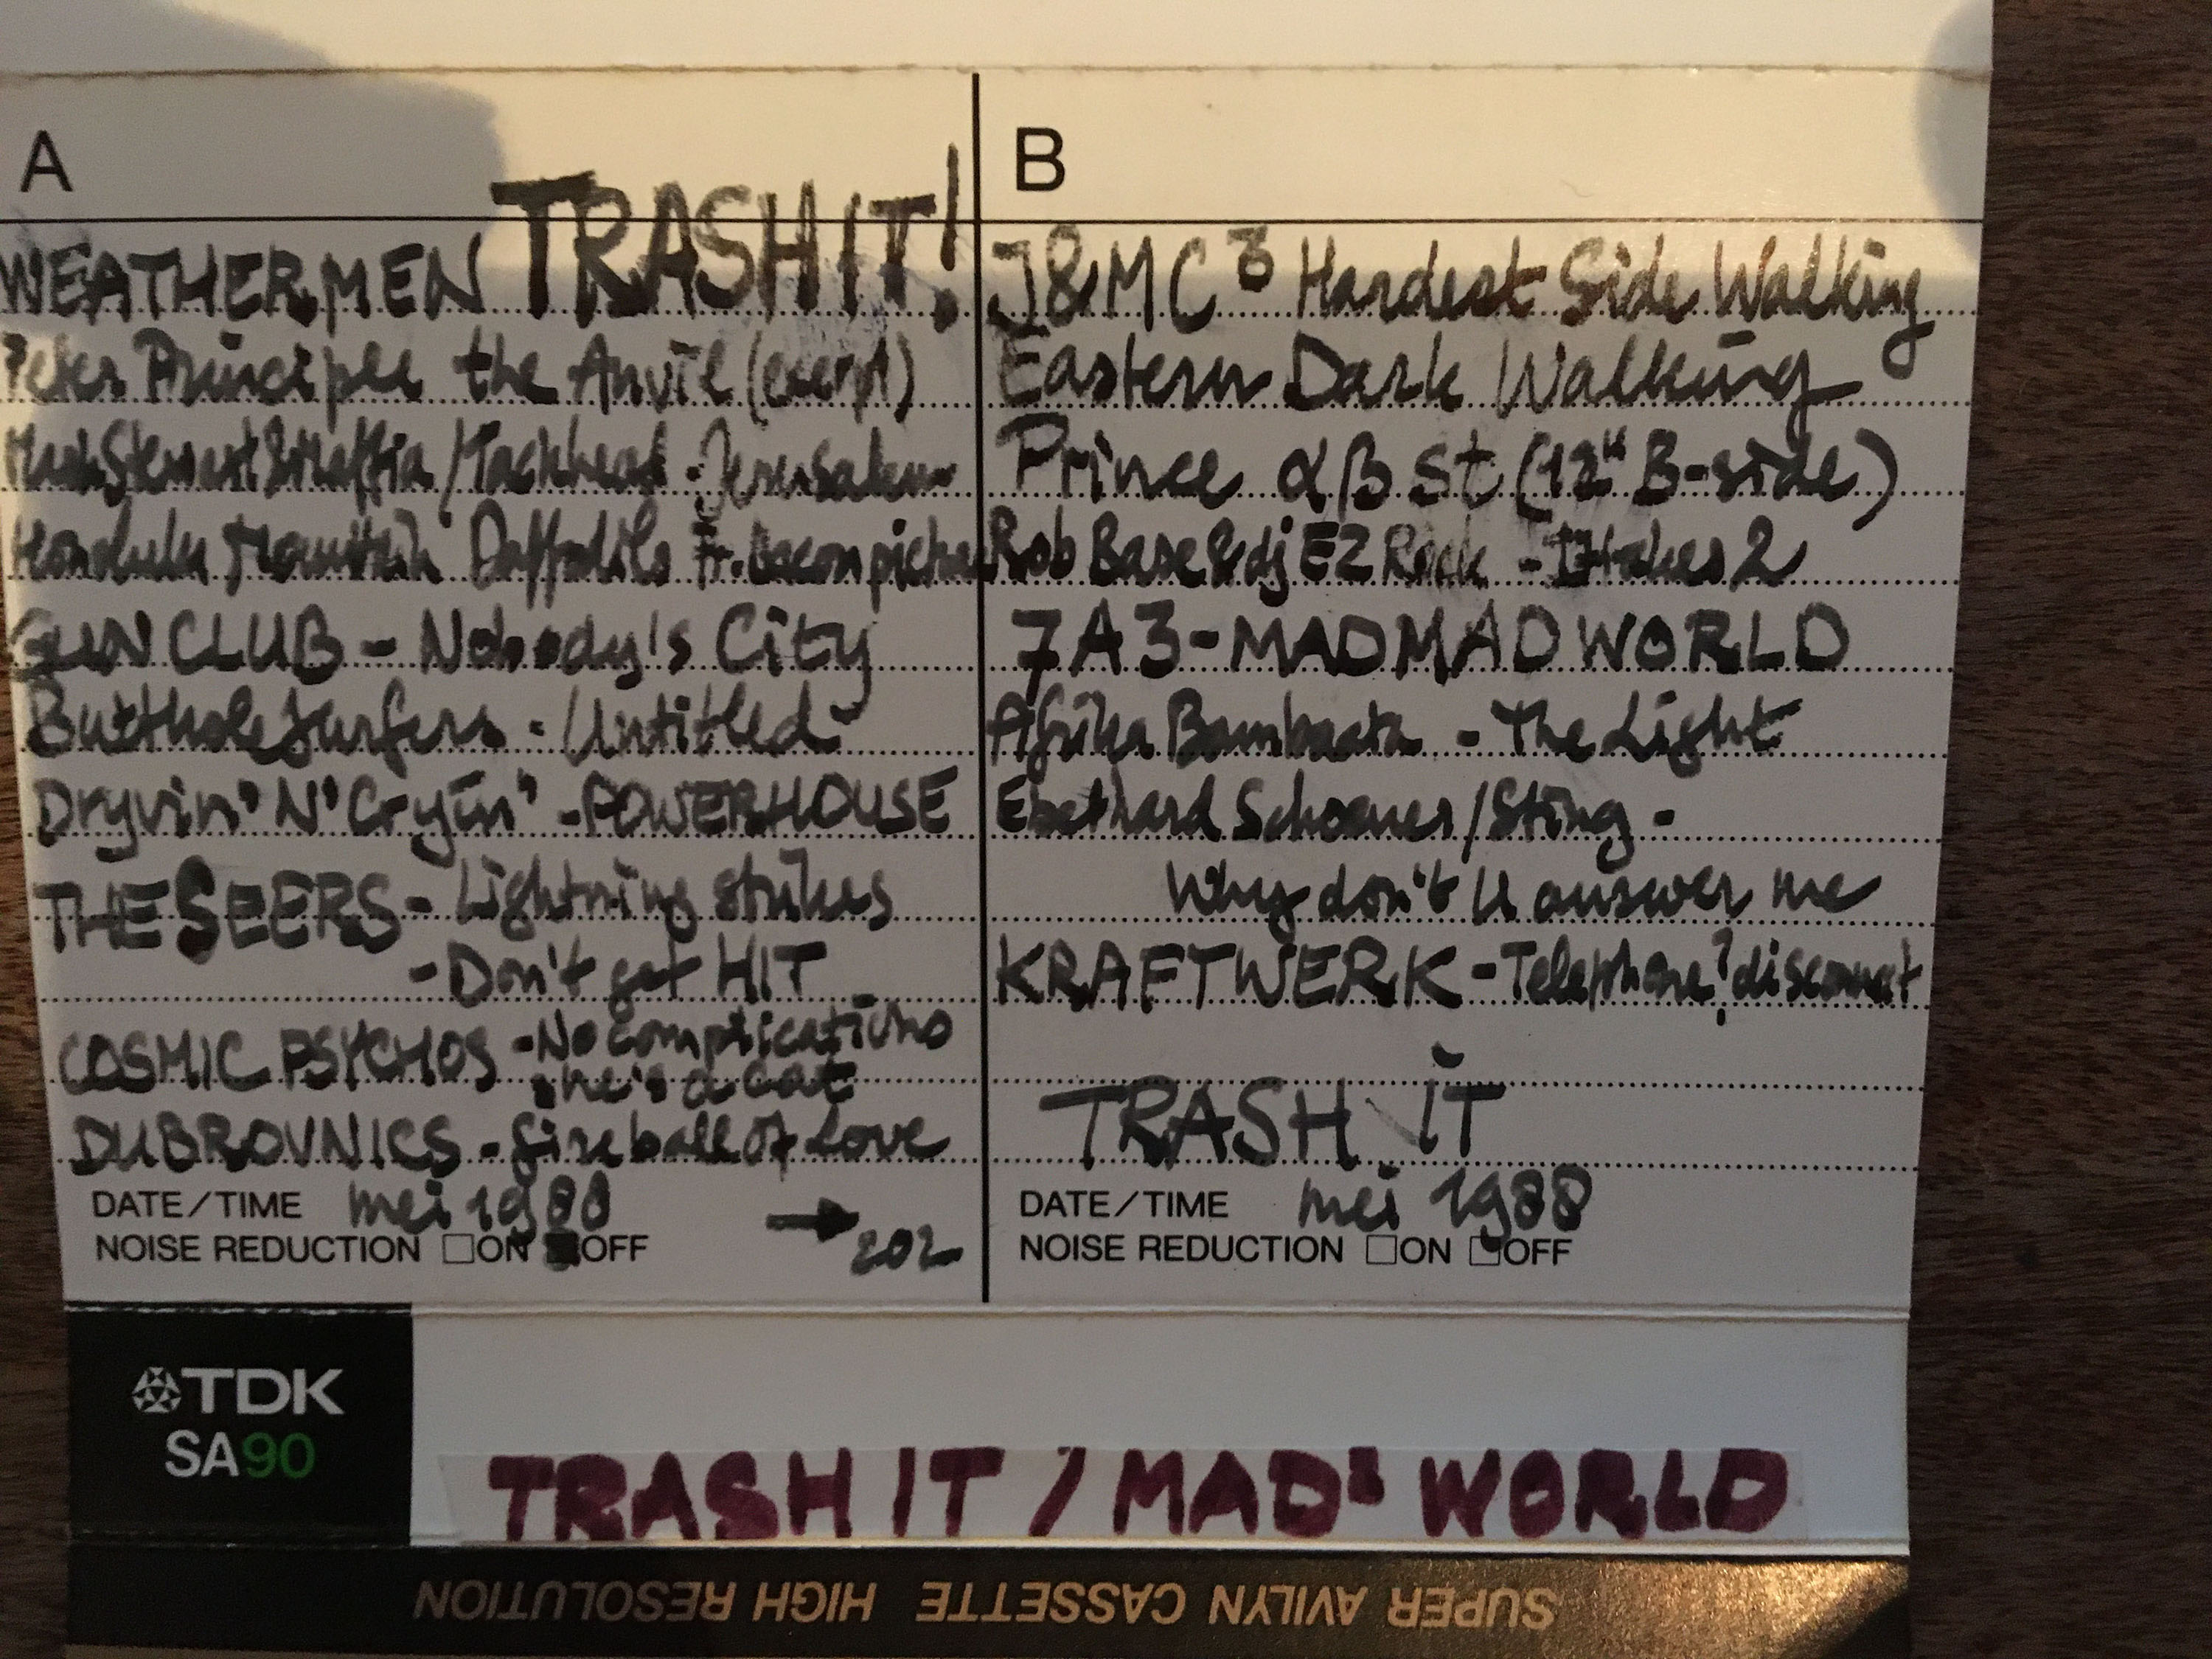 A
WEATHERMEN TRASH IT!
Peter Principle the Anvil (excerpt)
Mark Stewart & Maffia / Tackhead - Jerusalem
Honolulu Mountain Daffodils Fr. Bacon picture
GUN CLUB - Nobody's City
Butthole Surfers - Untitled
Dryvin' N' Cryin' - POWERHOUSE
THE SEERS - Lightning strikes
- Don't get HIT
COSMIC PSYCHOS - No complications
she's a cat
DUBROVNICS - fireball of Love
DATE/TIME mei 1988
NOISE REDUCTION ☐ON ■OFF → 202
B
J&MC³ Hardest Side Walking
Eastern Dark Walking
Prince αβ St (12" B-side)
Rob Base & dj EZ Rock - It takes 2
7A3 - MADMADWORLD
Afrika Bambaata - The Light
Eberhard Schoener / Sting -
Why don't U answer me
KRAFTWERK - Telephone? disconnect
TRASH IT
DATE/TIME mei 1988
NOISE REDUCTION ☐ON ☐OFF
TDK
SA90
TRASH IT / MAD² WORLD
SUPER AVILYN CASSETTE HIGH RESOLUTION